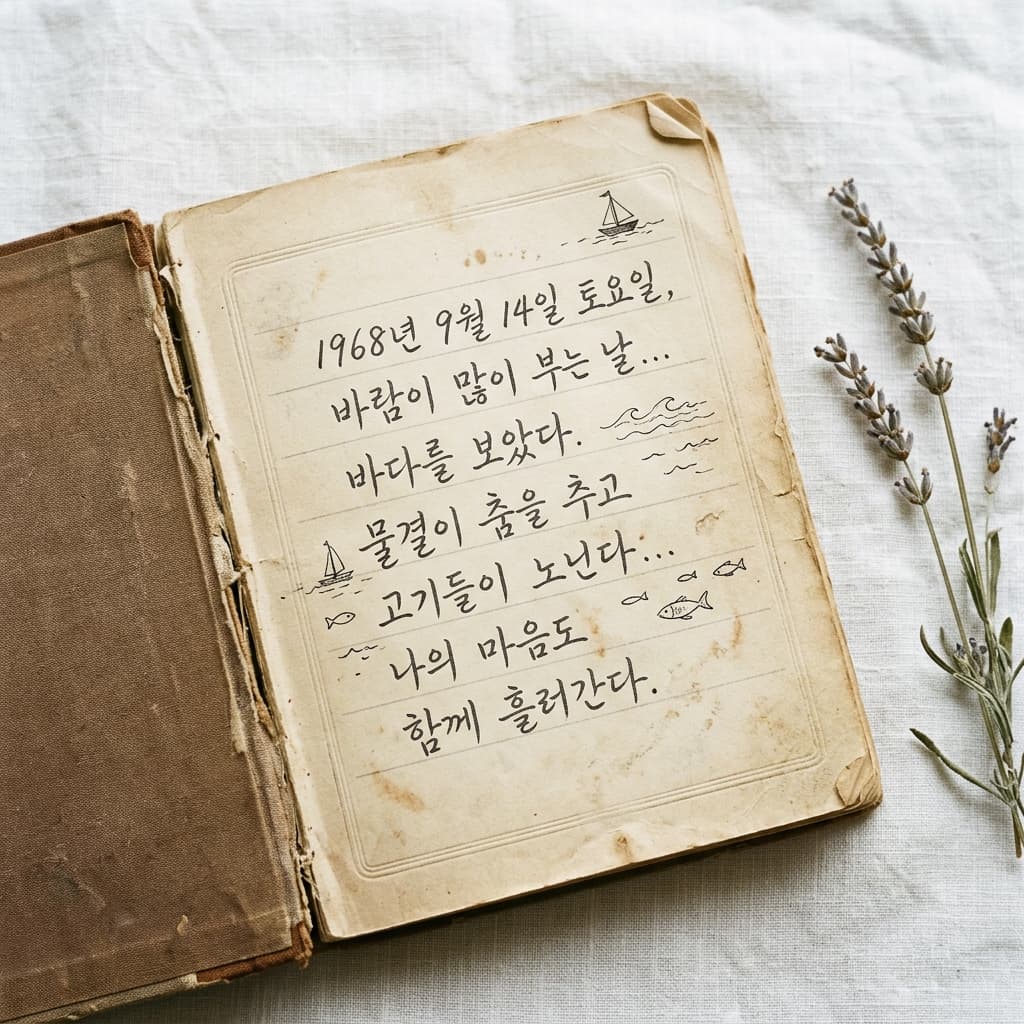 1968년 9월 14일 토요일,
바람이 많이 부는 날...
바다를 보았다.
물결이 춤을 추고
고기들이 노닌다...
나의 마음도
함께 흘러간다.